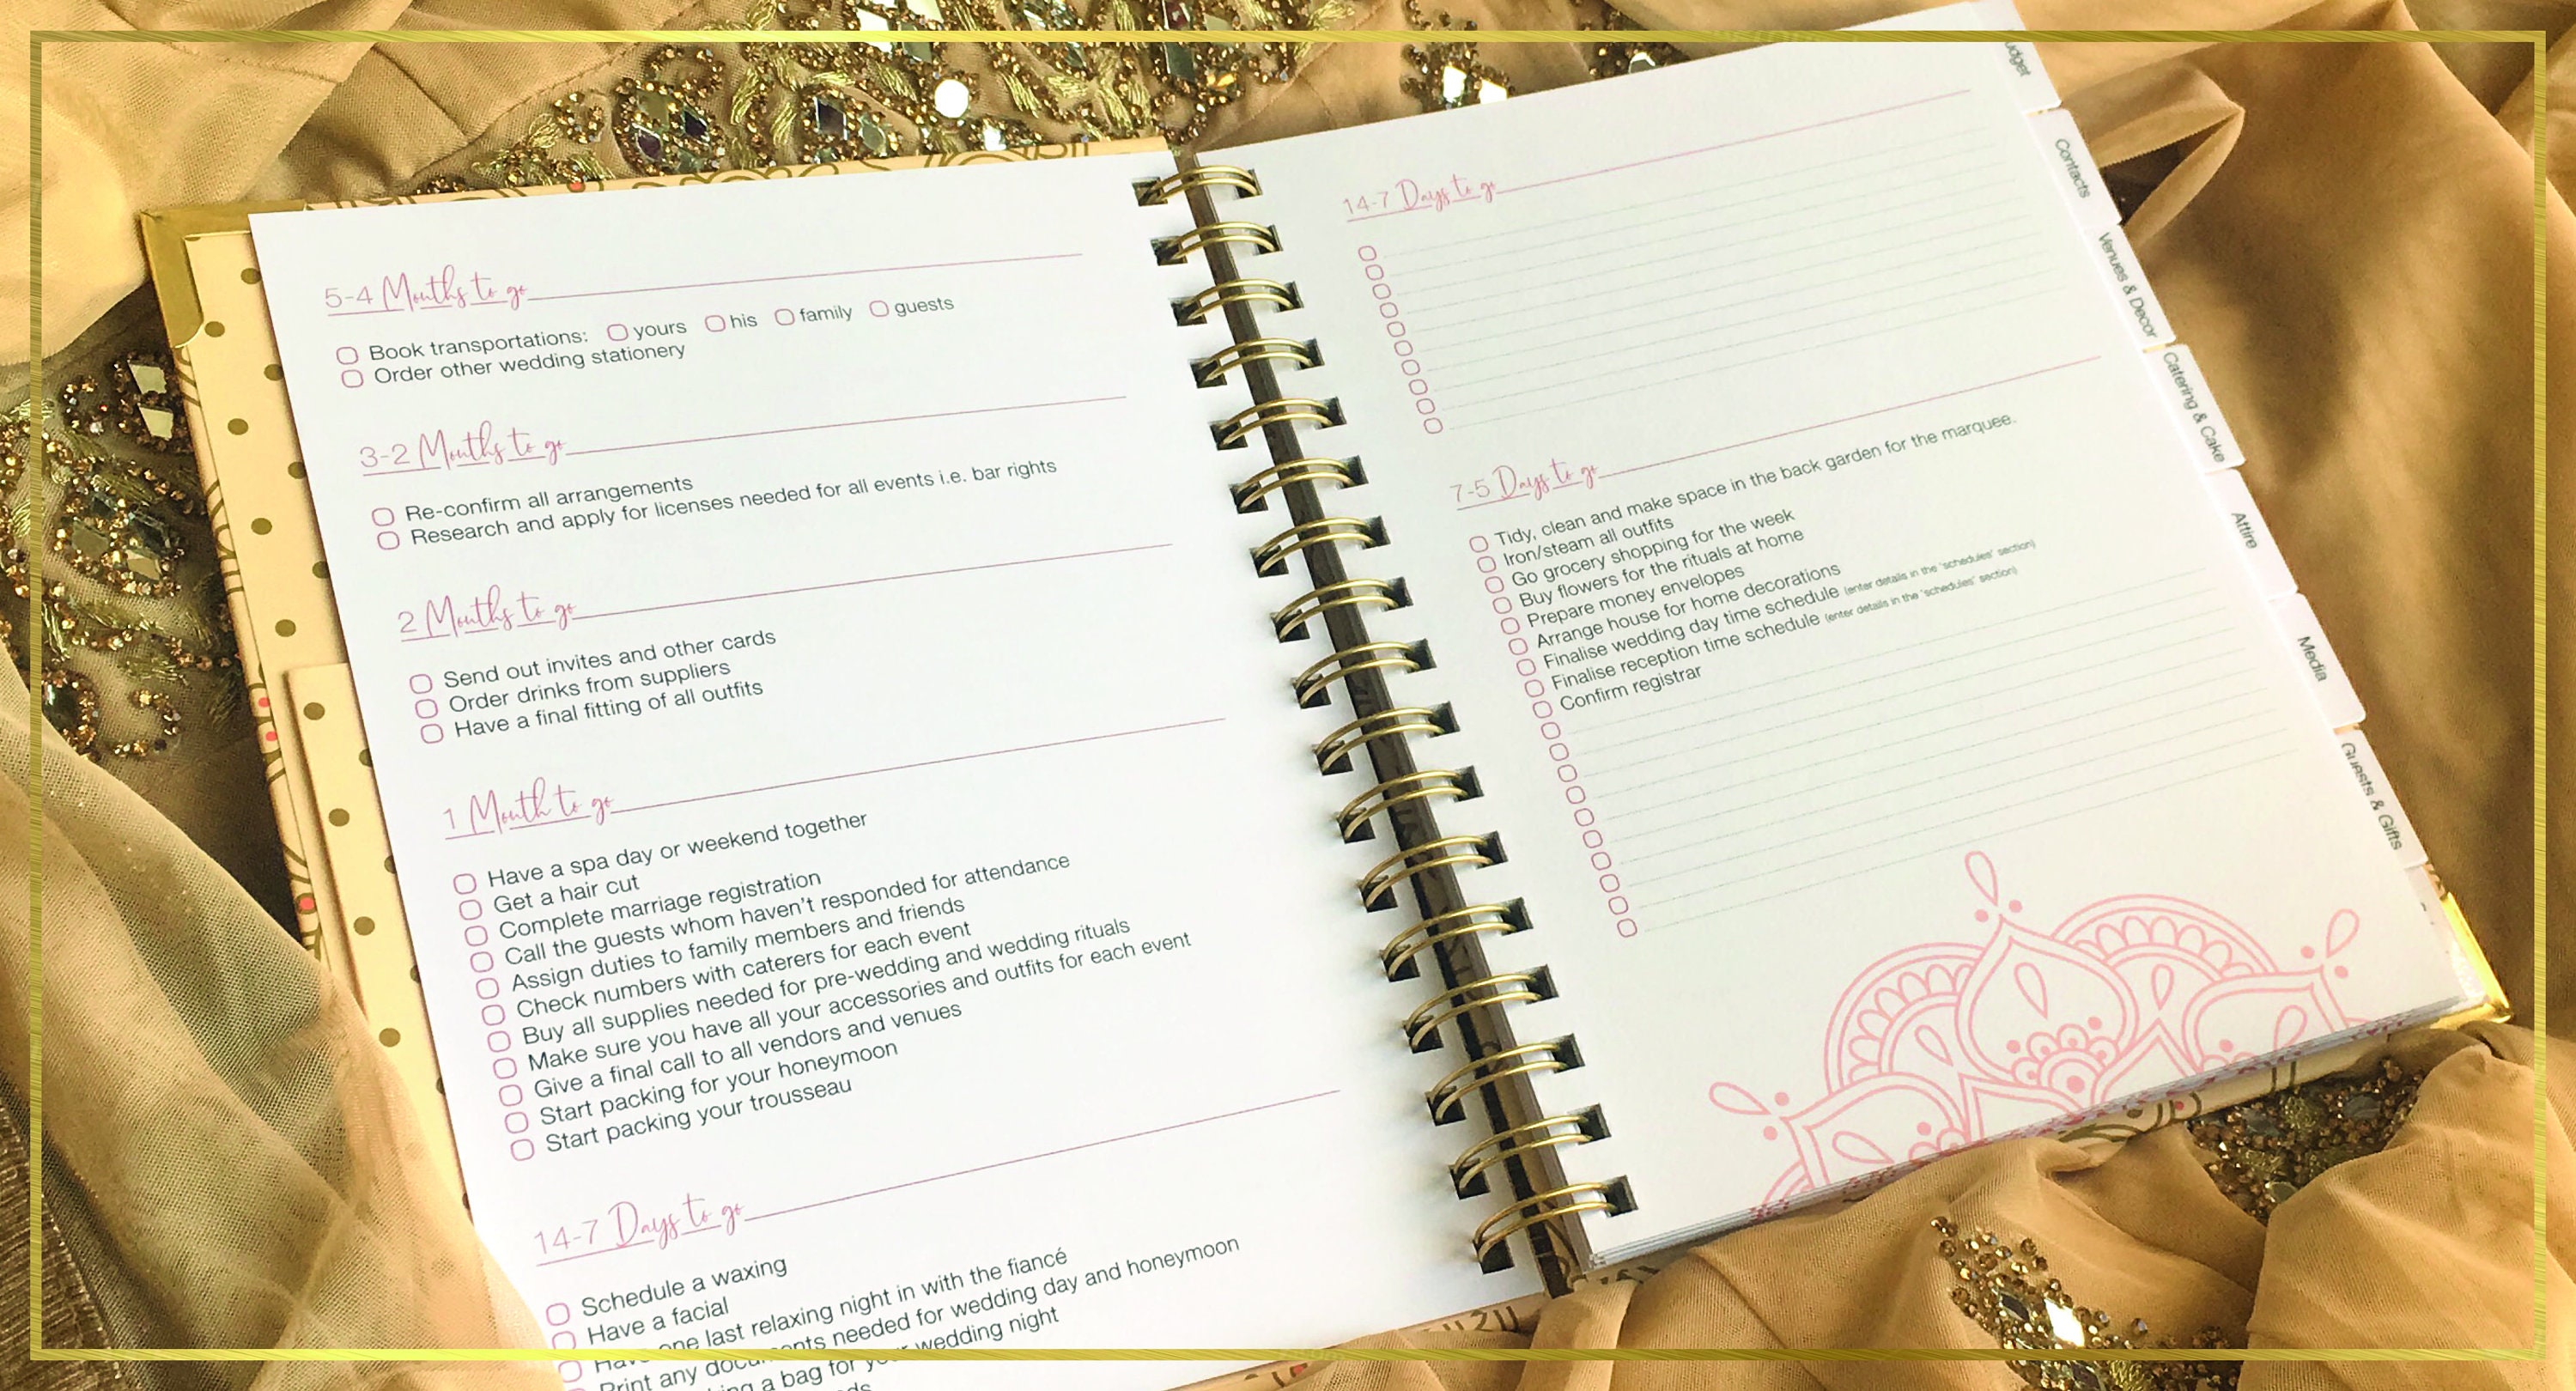 5-4 Months to go
Book transportations: yours his family guests
Order other wedding stationery
3-2 Months to go
Re-confirm all arrangements
Research and apply for licenses needed for all events i.e. bar rights
2 Months to go
Send out invites and other cards
Order drinks from suppliers
Have a final fitting of all outfits
1 Month to go
Have a spa day or weekend together
Get a hair cut
Complete marriage registration
Call the guests whom haven't responded for attendance
Assign duties to family members and friends
Check numbers with caterers for each event
Buy all supplies needed for pre-wedding and wedding rituals
Make sure you have all your accessories and outfits for each event
Give a final call to all vendors and venues
Start packing for your honeymoon
Start packing your trousseau
14-7 Days to go
Schedule a waxing
Have a facial
one last relaxing night in with the fiancé
Print any needed for wedding day and honeymoon
a bag for wedding night
14-7 Days to go
7-5 Days to go
Tidy, clean and make space in the back garden for the marquee.
Iron/steam all outfits
Go grocery shopping for the week
Buy flowers for the rituals at home
Prepare money envelopes
Arrange house for home decorations
Finalise wedding day time schedule (enter details in the 'schedules' section)
Finalise reception time schedule (enter details in the 'schedules' section)
Confirm registrar
Contacts
Venues & Decor
Catering & Cake
Attire
Media
Guests & Gifts